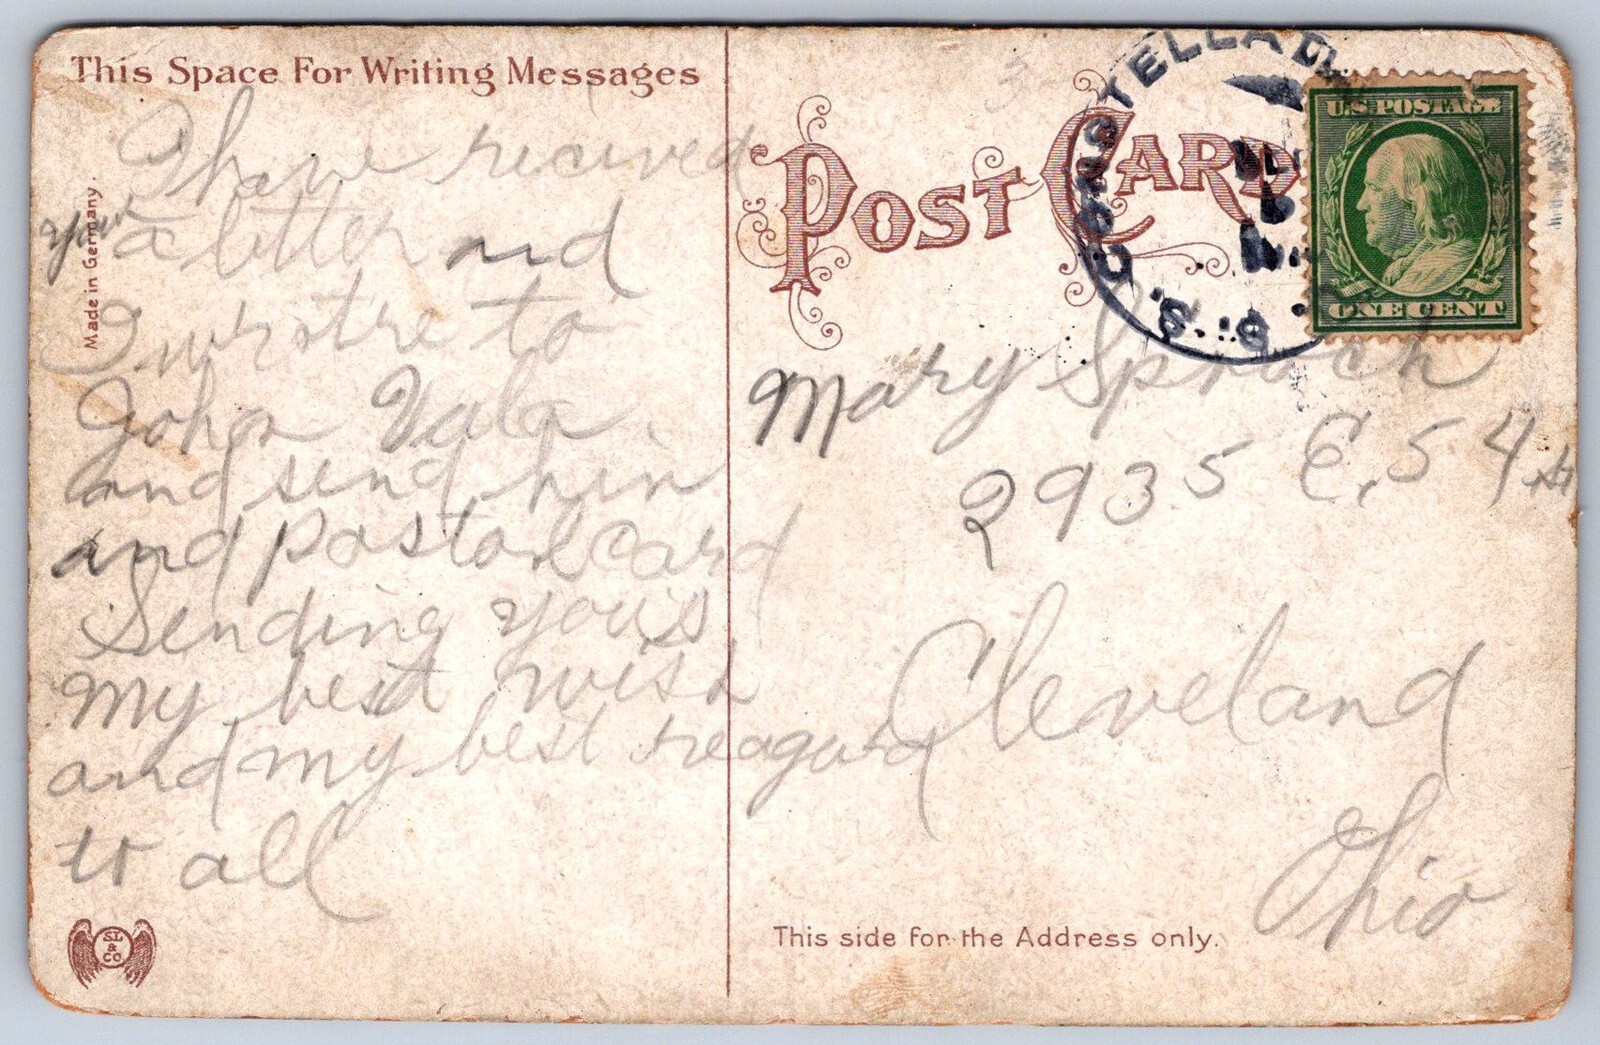 This Space For Writing Messages
I have recived
your a letter and
I wrotre to
John Vala
and send him
and Postalcard
Sending you's
My best wish
and my best reagurd
to all
Made in Germany.
SL
&
Co
POST CARD
U.S. POSTAGE
ONE CENT
U.S.S.
Mary
2935 E. 54 St
Cleveland
Ohio
This side for the Address only.